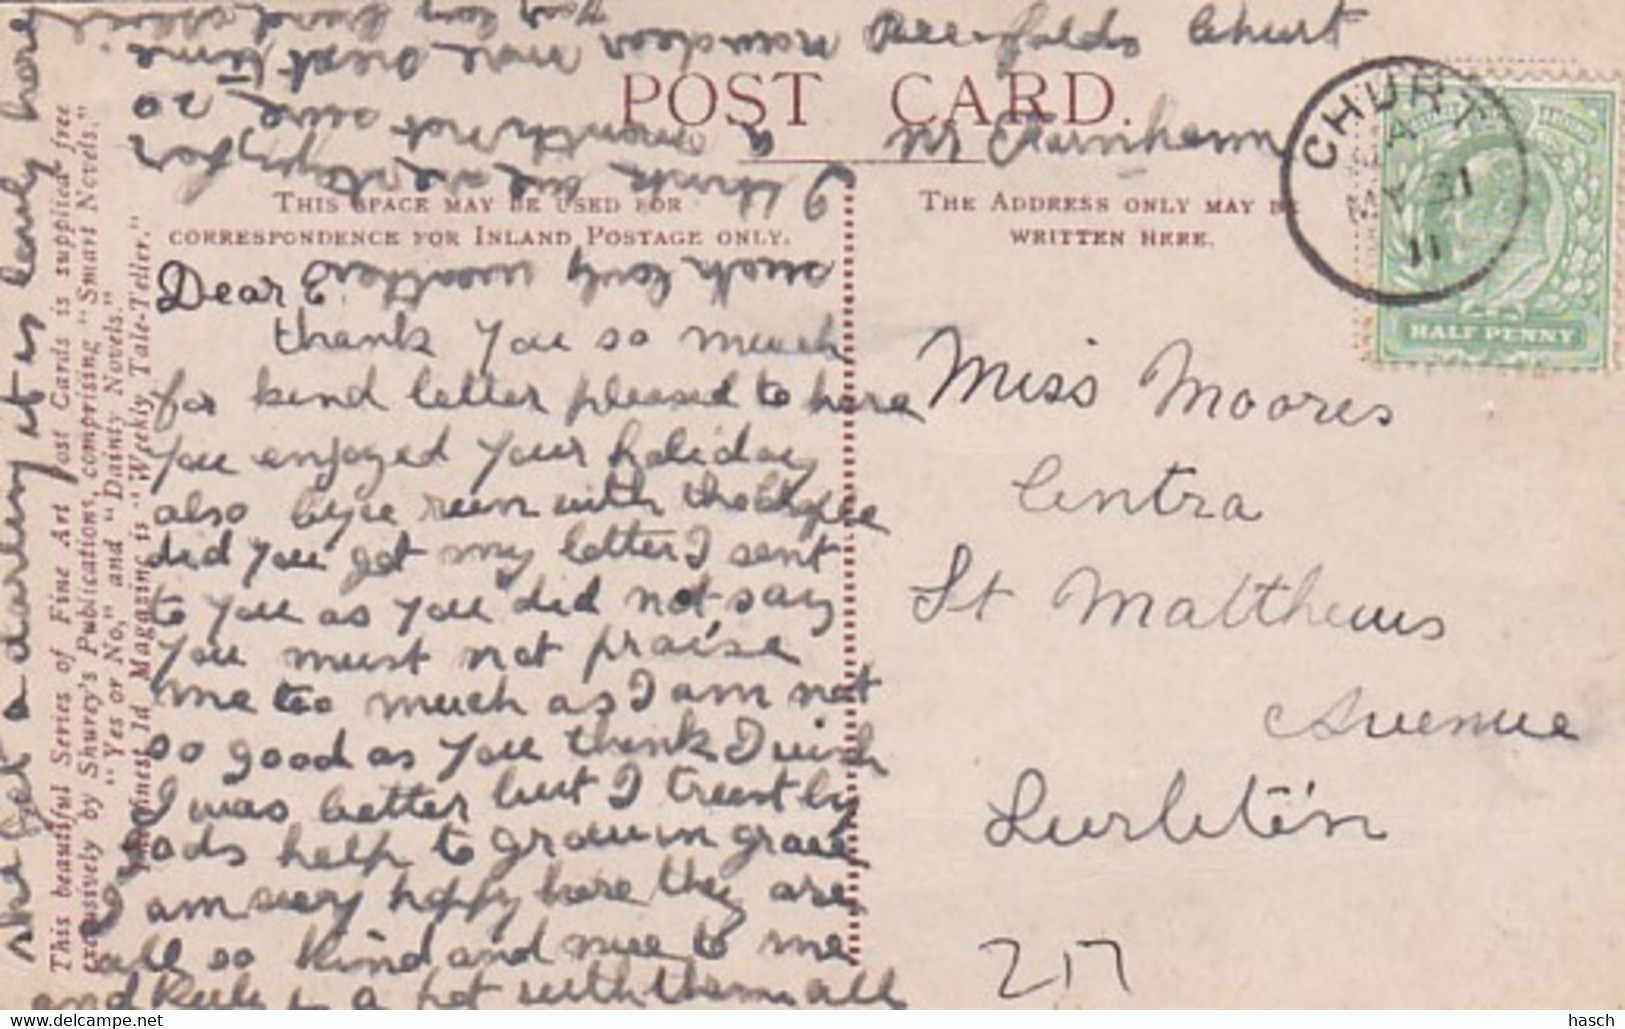 Beerfolds Churt
nr Farnham
POST CARD.
THIS SPACE MAY BE USED FOR
CORRESPONDENCE FOR INLAND POSTAGE ONLY.
THE ADDRESS ONLY MAY BE
WRITTEN HERE.
CHURT
A
MY 31
11
HALF PENNY
Dear E.
thank you so much
for kind letter pleased to here
you enjoyed your holiday
also run with the
did you get my letter I sent
to you as you did not say
you must not praise
me too much as I am not
so good as you think I wish
I was better but I trust by
Gods help to grow in grace
I am very happy here they are
all so kind and nice to me
and is a pet with them all
she get a darling it is lovely here
such lovely weather
I think we are to
a month not sure,
more next time
now dear
Miss Moores
Centra
St Matthews
Avenue
Surbiton
217
This beautiful Series of Fine Art Post Cards is supplied free
exclusively by Shurey's Publications, comprising "Smart Novels,"
"Yes or No," and "Dainty Novels."
The finest 1d Magazine is "Weekly Tale-Teller."
delcampe.net
hasch